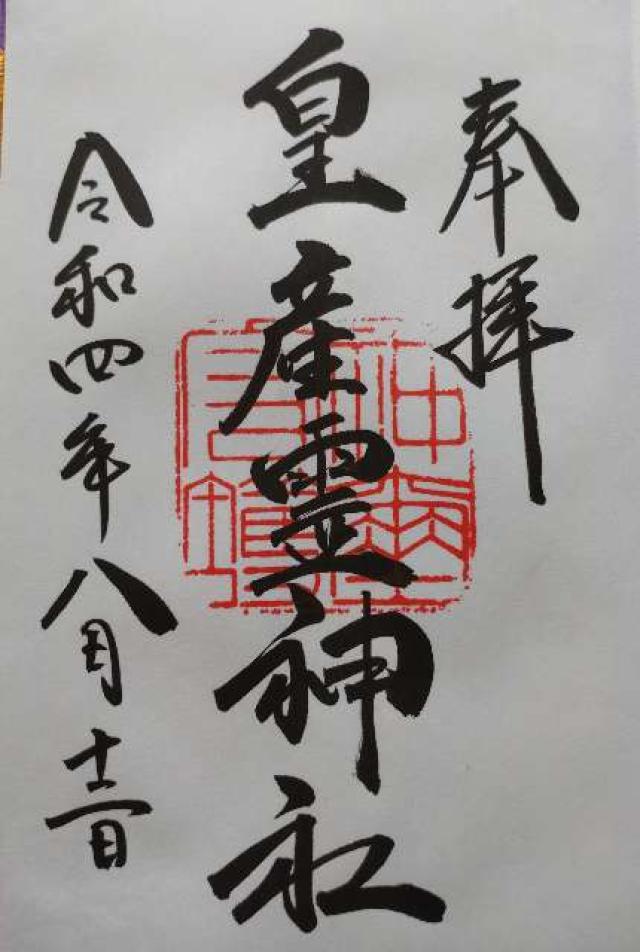 奉拝
皇産霊神社
令和四年八月十二日